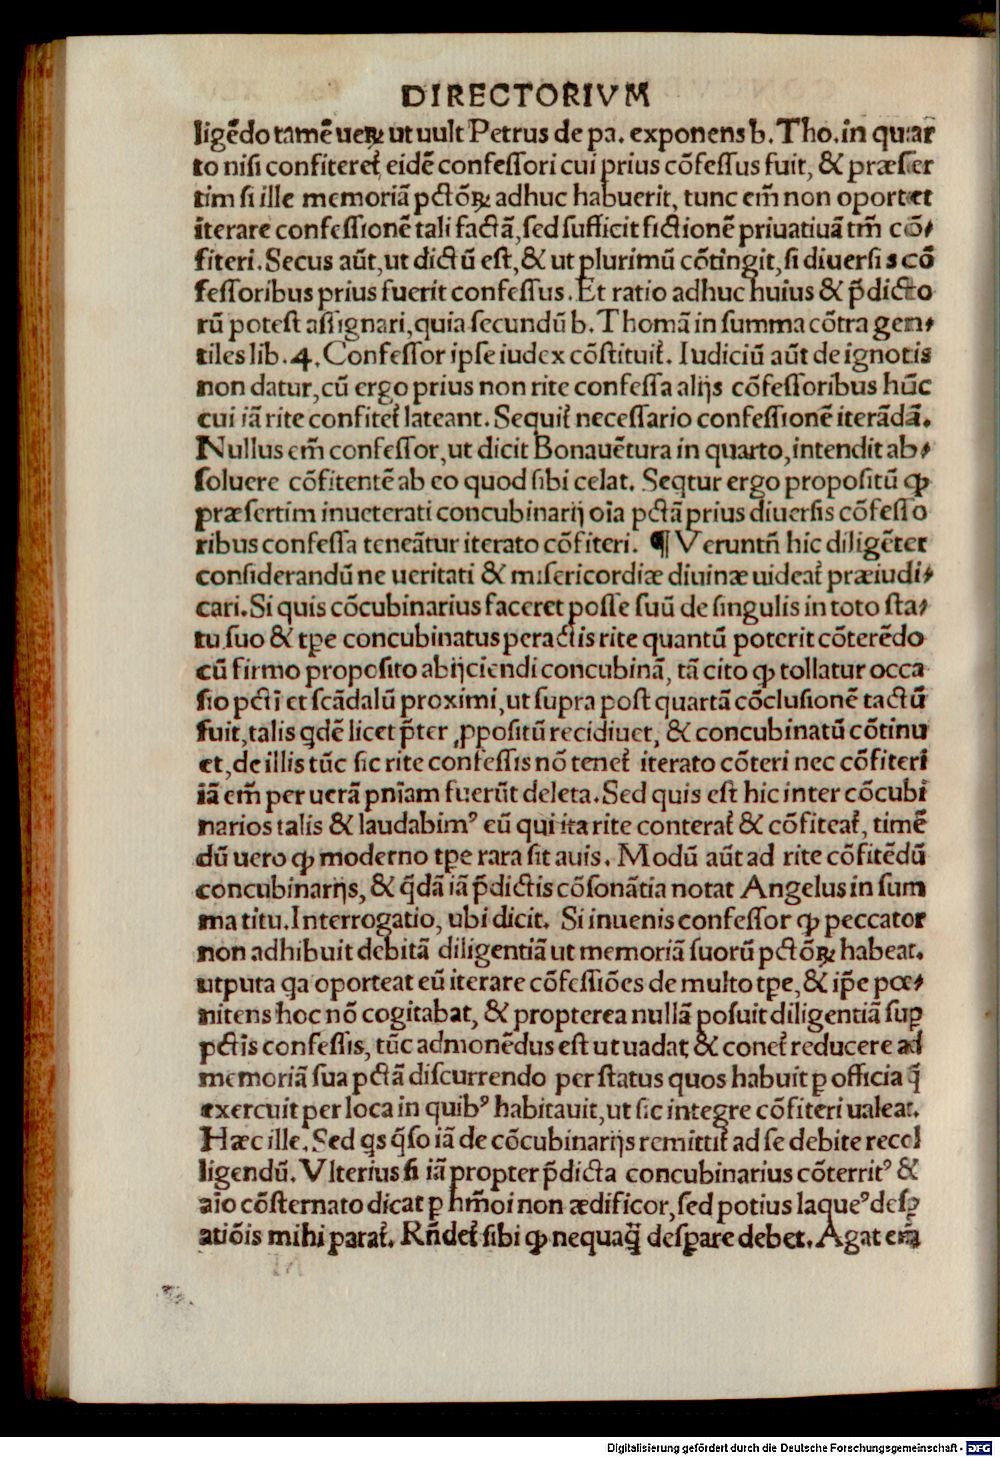 DIRECTORIVM
ligẽdo tamẽ ueꝝ ut uult Petrus de pa. exponens b. Tho. in quar
to nisi confiteret᷑ eidẽ confessori cui prius cõfessus fuit, & præser
tim si ille memoriã pctõꝝ adhuc habuerit, tunc em̃ non oportet
iterare confessionẽ tali factã, sed sufficit fictionẽ priuatiuã tm̃ cõ⸗
fiteri. Secus aũt, ut dictũ est, & ut plurimũ cõtingit, si diuersis cõ
fessoribus prius fuerit confessus. Et ratio adhuc huius & p̃dicto
rũ potest assignari, quia secundũ b. Thomã in summa cõtra gen⸗
tiles lib. 4. Confessor ipse iudex cõstituit᷑. Iudiciũ aũt de ignotis
non datur, cũ ergo prius non rite confessa alijs cõfessoribus hũc
cui iã rite confitet᷑ lateant. Sequit᷑ necessario confessionẽ iterãdã.
Nullus em̃ confessor, ut dicit Bonauẽtura in quarto, intendit ab⸗
soluere cõfitentẽ ab eo quod sibi celat. Seqtur ergo propositũ ꝙ
præsertim inueterati concubinarij oĩa pctã prius diuersis cõfesso
ribus confessa teneãtur iterato cõfiteri. ¶ Veruntñ hic diligẽter
considerandũ ne ueritati & misericordiæ diuinæ uideat᷑ præiudi⸗
cari. Si quis cõcubinarius faceret posse suũ de singulis in toto sta⸗
tu suo & tꝑe concubinatus peractis rite quantũ poterit cõterẽdo
cũ firmo proposito abijciendi concubinã, tã cito ꝙ tollatur occa
sio pcti et scãdalũ proximi, ut supra post quartã cõclusionẽ tactũ
fuit, talis qdẽ licet p̃ter ꝓpositũ recidiuet, & concubinatũ cõtinu
et, de illis tũc sic rite confessis nõ tenet᷑ iterato cõteri nec cõfiteri
iã em̃ per uerã pñiam fuerũt deleta. Sed quis est hic inter cõcubi
narios talis & laudabimꝰ eũ qui ita rite conterat᷑ & cõfiteat᷑, timẽ
dũ uero ꝙ moderno tꝑe rara sit auis. Modũ aũt ad rite cõfitẽdũ
concubinarijs, & q̃dã iã p̃dictis cõsonãtia notat Angelus in sum
ma titu. Interrogatio, ubi dicit. Si inuenis confessor ꝙ peccator
non adhibuit debitã diligentiã ut memoriã suorũ pctõꝝ habeat.
utputa qa oporteat eũ iterare cõfessiões de multo tꝑe, & ip̃e pœ⸗
nitens hoc nõ cogitabat, & propterea nullã posuit diligentiã suꝑ
pctĩs confessis, tũc admonẽdus est ut uadat & conet᷑ reducere ad
memoriã sua pctã discurrendo per status quos habuit ꝑ officia q̃
exercuit per loca in quibꝰ habitauit, ut sic integre cõfiteri ualeat.
Hæc ille. Sed qs q̃so iã de cõcubinarijs remittit ad se debite recol
ligendũ. Vlterius si iã propter p̃dicta concubinarius cõterritꝰ &
aĩo cõsternato dicat ꝑ hm̃oi non ædificor, sed potius laqueꝰ desꝑ
atiõis mihi parat᷑. Rñdet᷑ sibi ꝙ nequaq̃ desꝑare debet. Agat em̃
Digitalisierung gefördert durch die Deutsche Forschungsgemeinschaft - DFG